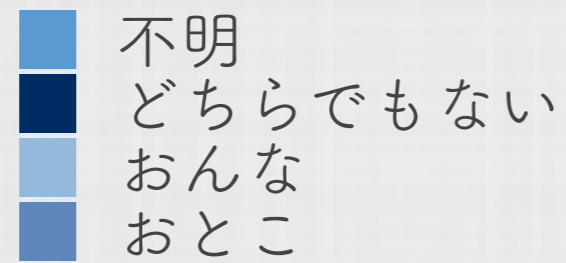 不明
どちらでもない
おんな
おとこ